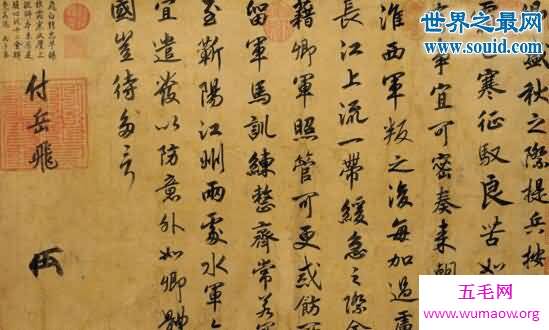 盛秋之際提兵按
已寒征馭良苦如
事宜可密奏来朝
淮西軍叛之後每加過慮
長江上流一帶緩急之際全
藉卿軍照管可更戒飭所
留軍馬訓練整齊常若寇
至蘄陽江州兩處水軍亦
宜遣發以防意外如卿體
國豈待多言
付岳飛
世界之最
www.souid.com
五毛网
www.wumaow.org